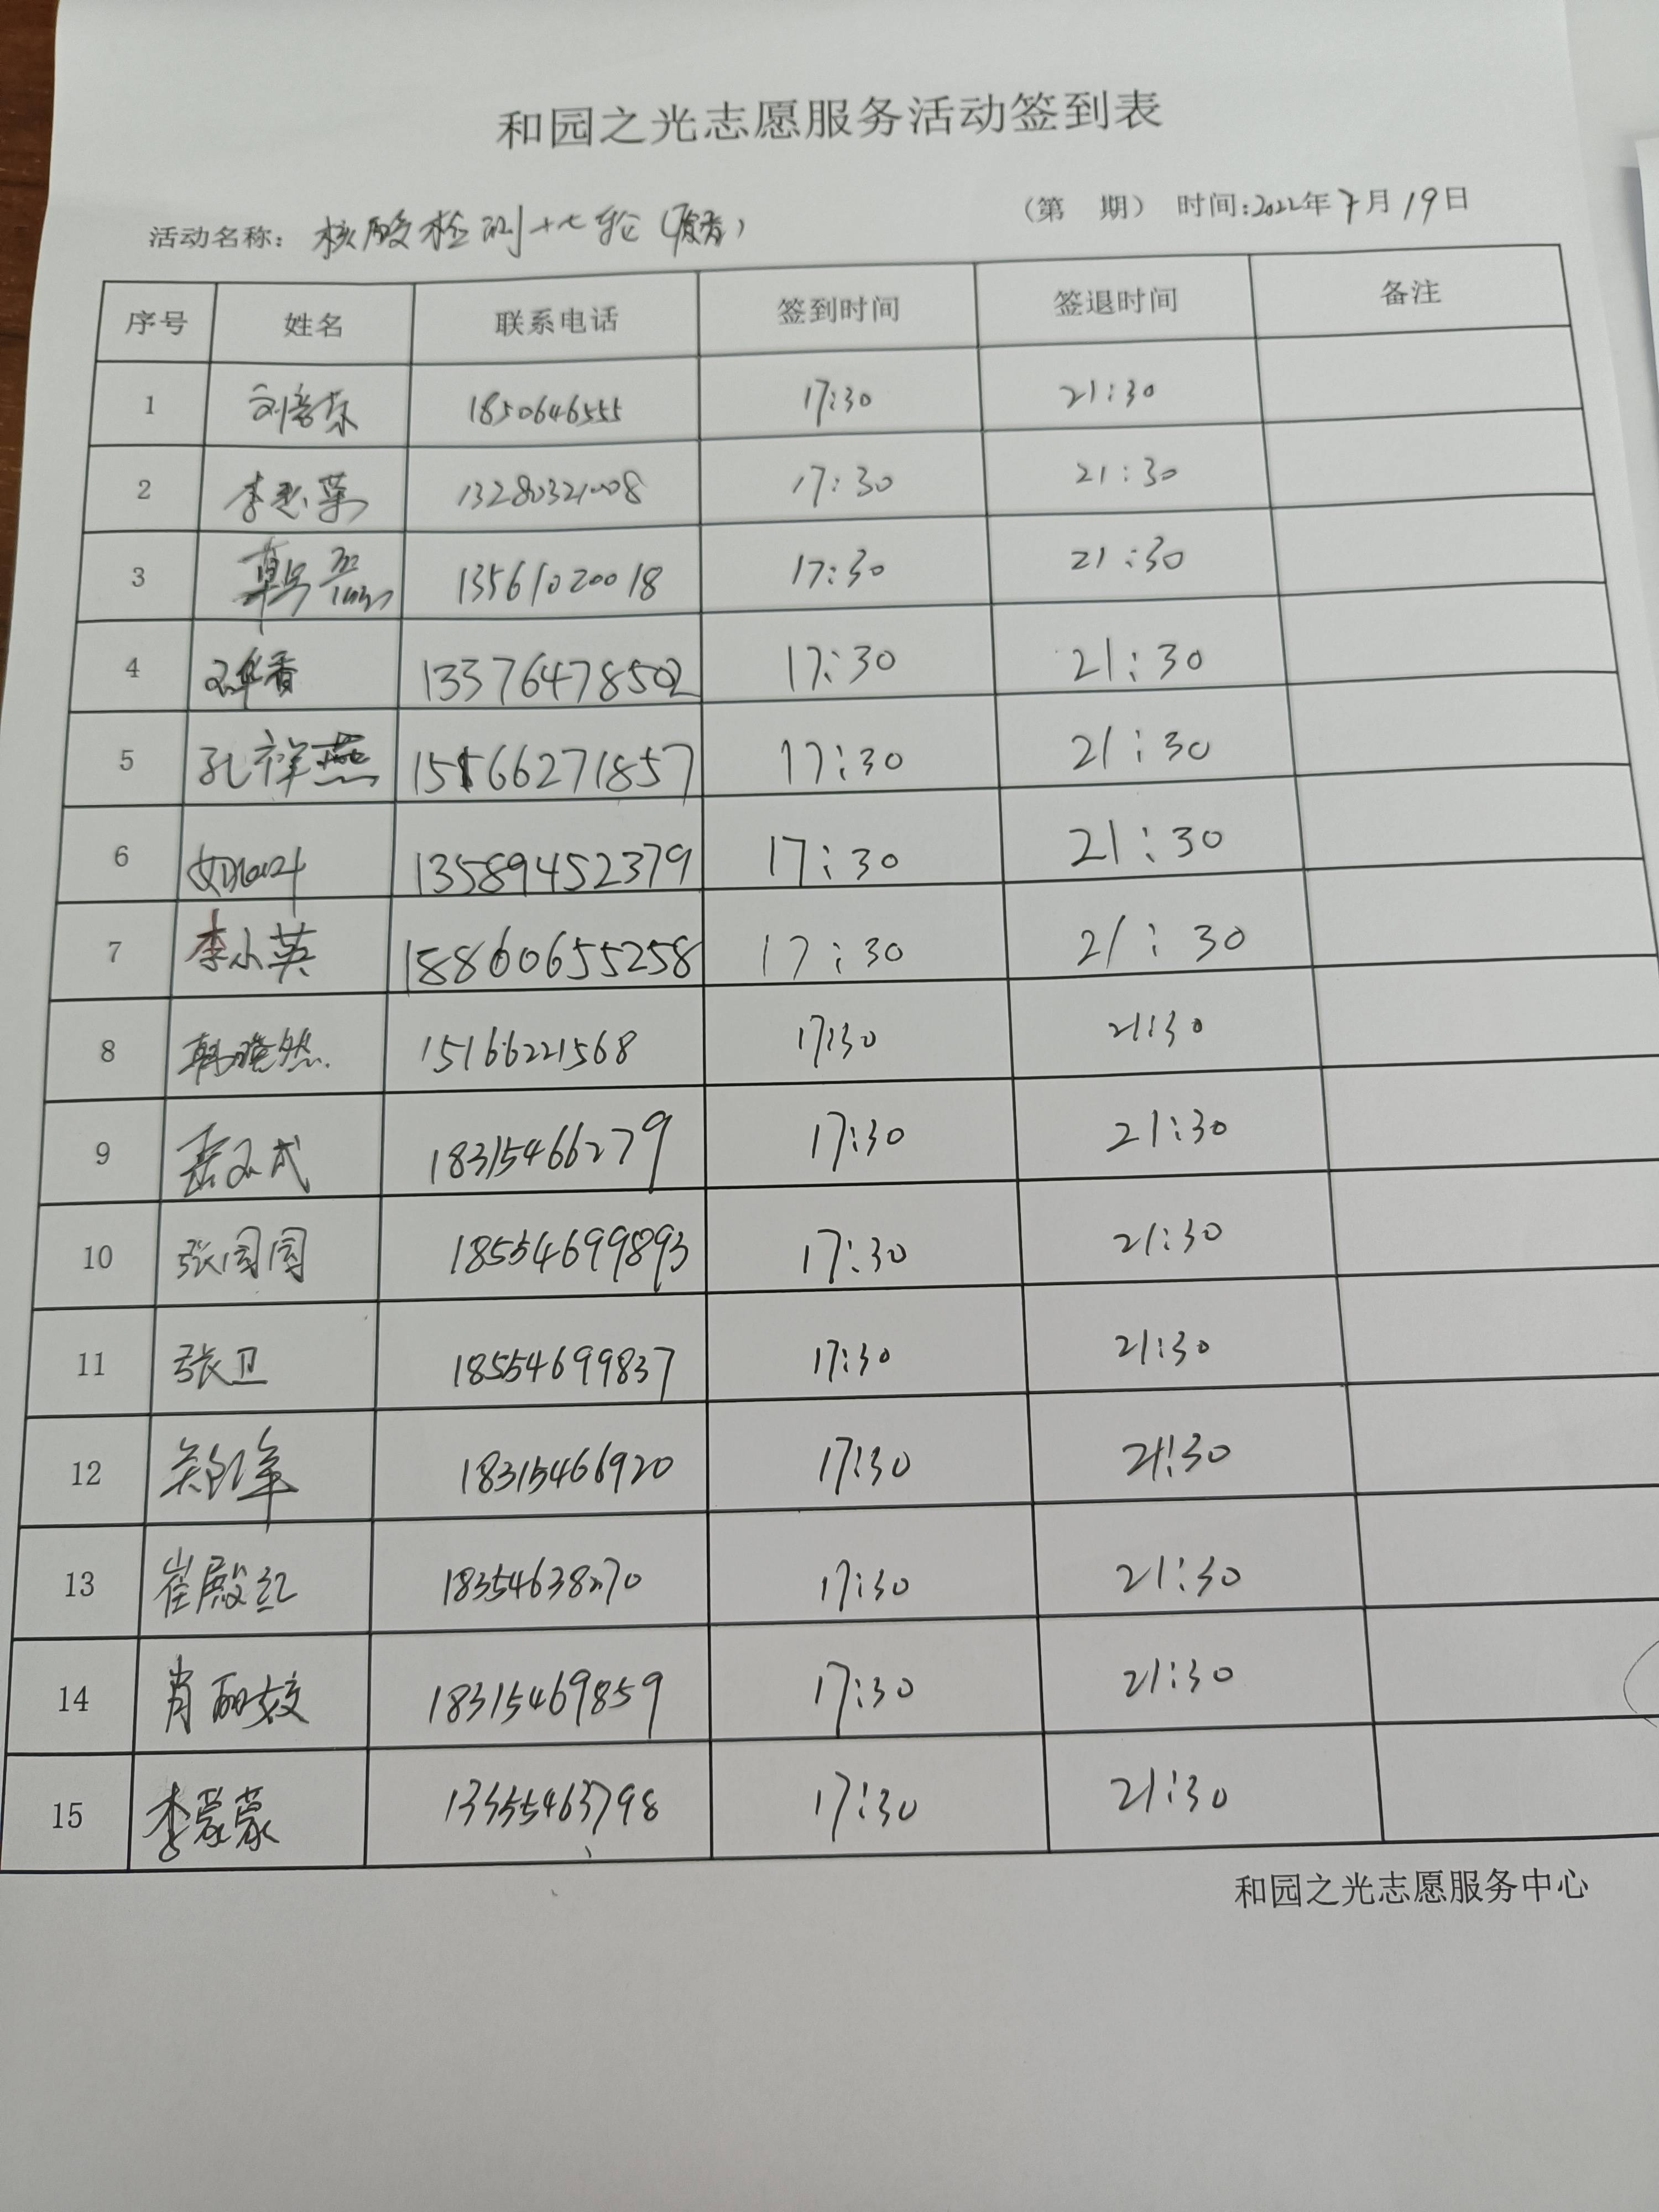 和园之光志愿服务活动签到表
活动名称：核酸检测十七轮 （第 期） 时间：2022年7月19日
序号 姓名 联系电话 签到时间 签退时间 备注
1 1850646555 17:30 21:30
2 13280321008 17:30 21:30
3 13561020018 17:30 21:30
4 13376478502 17:30 21:30
5 孔祥燕 15166271857 17:30 21:30
6 13589452379 17:30 21:30
7 李小英 18860655258 17:30 21:30
8 韩晓然 15166221568 17:30 21:30
9 18315466279 17:30 21:30
10 18554699893 17:30 21:30
11 张卫 18554699837 17:30 21:30
12 18315466920 17:30 21:30
13 崔殿红 17:30 21:30
14 肖丽姣 18315469859 17:30 21:30
15 李蒙蒙 13355463798 17:30 21:30
和园之光志愿服务中心